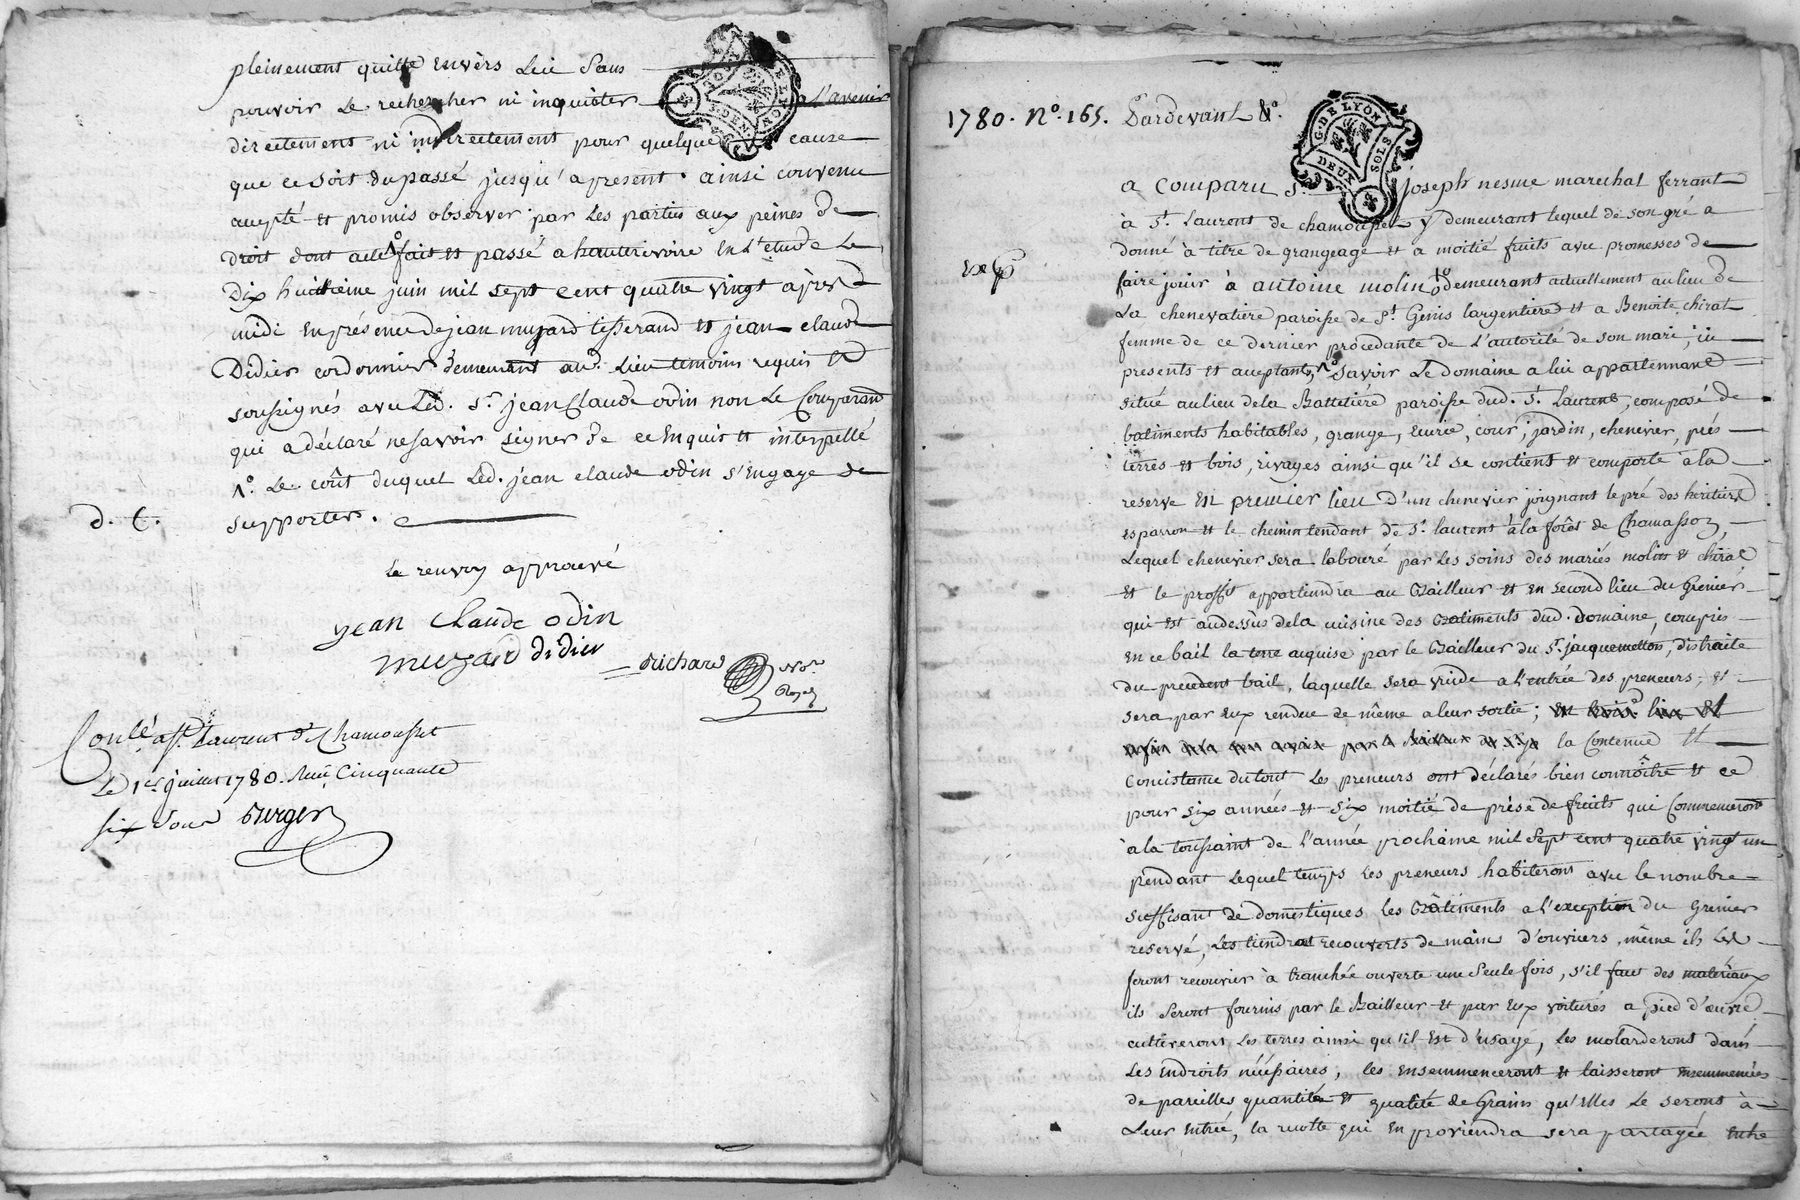 pleinement quitte envers Lui sans
pouvoir Le rechercher ni inquieter a L'avenir
directement ni indirectement pour quelque cause
que ce soit du passé jusqu'apresent. ainsi convenu
accepté et promis observer par Les parties aux peines de
droit dont acte fait et passé a hauterivoire en L'etude Le
Dix huitieme juin mil sept cent quatre vingt après
midi En présence de jean muzard tisserand et jean claude
Didier cordonnier demeurant aud. Lieu temoins requis et
soussignés avec Led. Sr. jean Claude odin non Le Comparant
qui a déclaré ne savoir signer de ce Enquis et interpellé
Le coût duquel Led. jean claude odin s'engage de
d. C. supporter.
Le renvoy approuvé
jean Claude odin
muzard didier
Richard Nore
Royal
Conlé a St. Laurent de Chamousset
Le 1er juillet 1780. Reçu Cinquante
six sous Burger
G. DE LYON
DEUX SOLS
1780. No. 165. Pardevant &c.
a comparu Sr. joseph nesme marechal ferrant
à St. Laurent de chamousset y demeurant lequel de son gré a
donné à titre de grangeage et a moitié fruits avec promesses de
Exp
faire jouir à antoine molin demeurant actuellement au lieu de
La chenevatiere paroisse de St. Genis largentiere et a Benoite chirat
femme de ce dernier procedante de L'autorité de son mari, ici
presents et acceptants, Savoir Le domaine a lui appartenant
situé au lieu de la Battetiere paroisse dud. St. Laurent, composé de
batiments habitables, grange, Ecurie, cour, jardin, chenevier, prés
terres et bois, rivages ainsi qu'il se contient et comporte à la
reserve en premier lieu D'un chenevier joignant le pré des heritiers
esparron et le chemin tendant de St. laurent à la forêt de Chamasson,
Lequel chenevier sera labouré par Les soins des mariés molin et chirat
et le proffit appartiendra au Bailleur et en second lieu du Grenier
qui est audessus de la cuisine des Batiments dud. domaine, compris
en ce bail la terre acquise par le Bailleur du Sr. jacquemetton, distraite
du precedent bail, laquelle sera vuide a l'entrée des preneurs, et
sera par Eux rendue de même a leur sortie;
la Contenue et
Concistance du tout Les preneurs ont déclarés bien connôitre et ce
pour six années et six moitié de prise de fruits qui Commenceront
à la toussaint de l'année prochaine mil sept cent quatre vingt un,
pendant Lequel temps Les preneurs habiteront avec le nombre
suffisant de domestiques les Bâtiments a l'exception du Grenier
reservé, Les tiendront recouverts de mains d'ouvriers, même ils Les
feront recouvrir à tranchée ouverte une seule fois, s'il faut des matériaux
ils seront fournis par le Bailleur et par Eux voiturés a pied d'œuvre
cultiveront Les terres ainsi qu'il est d'usage, Les molarderont dans
Les Endroits nécéssaires, les ensemmenceront et laisseront ensemmencées
de pareilles quantité et qualité de Grains qu'elles Le seront à
Leur Entrée, la recolte qui en proviendra sera partagée Entre